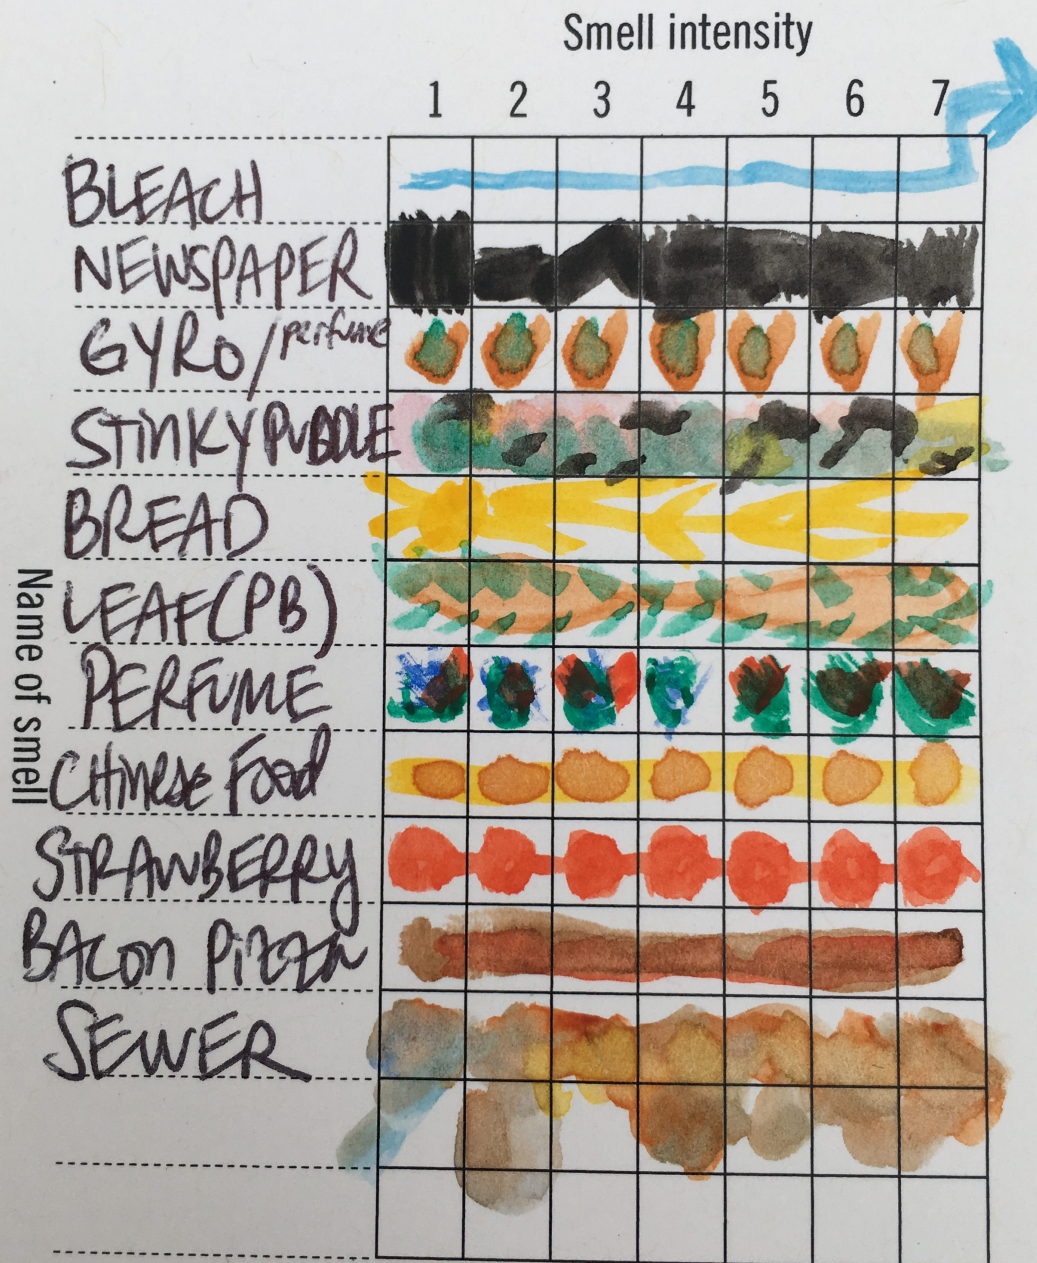 Smell intensity
1 2 3 4 5 6 7
Name of smell
BLEACH
NEWSPAPER
GYRO/perfume
STINKY PUDDLE
BREAD
LEAF(PB)
PERFUME
CHINESE FOOD
STRAWBERRY
BACON PIZZA
SEWER